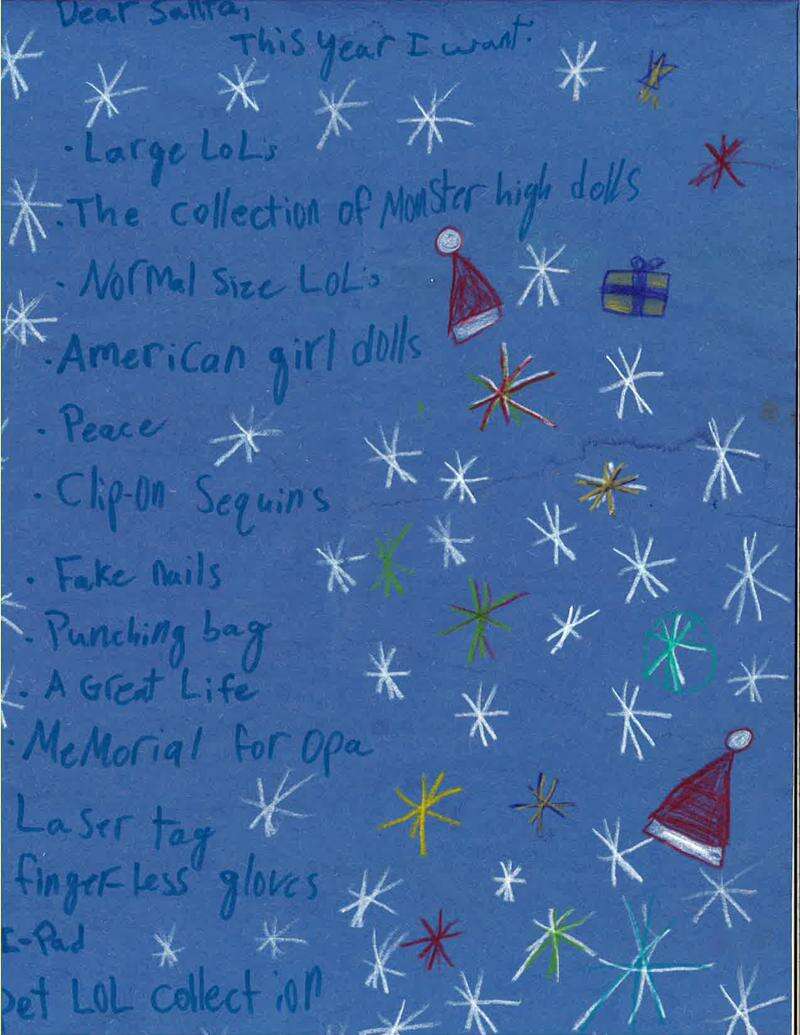 Dear Santa,
This year I want:
· Large LoL's
· The collection of Monster high dolls
· Normal Size LoL's
· American girl dolls
· Peace
· Clip-On Sequins
· Fake nails
· Punching bag
· A Great Life
· Memorial for Opa
Laser tag
finger-less gloves
I-Pad
Pet LOL collection